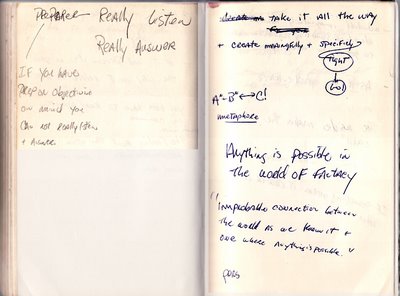 PREPARE Really Listen
Really Answer
If you have
prep or objective
in mind you
can not really listen
+ answer
take it all the way
+ create meaningfully + specificly
fight
Go!
A + B ↔ C!
metaphore
Anything is possible in
the world of Fantasy
"Improbable connection between
the world as we know it +
one where Anything is possible."